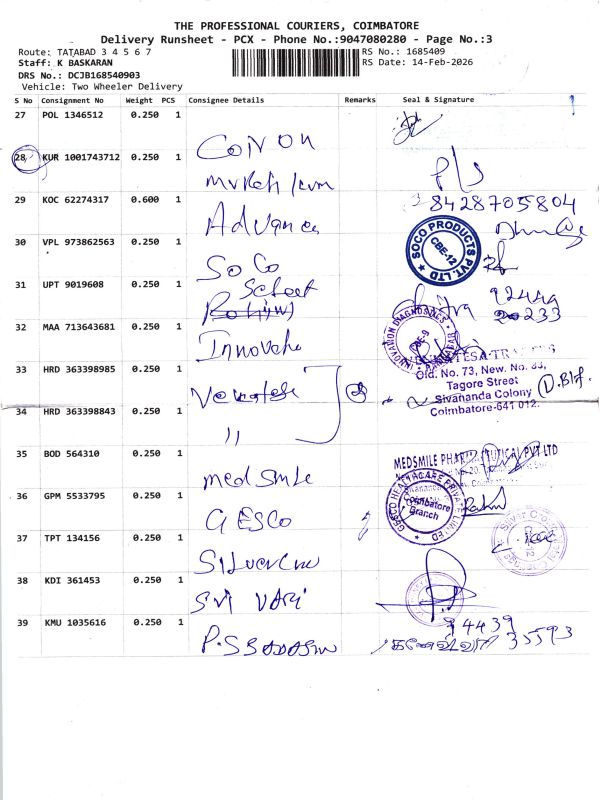 THE PROFESSIONAL COURIERS, COIMBATORE
Delivery Runsheet - PCX - Phone No.:9047080280 - Page No.:3
Route: TATABAD 3 4 5 6 7
RS No.: 1685409
Staff: K BASKARAN
RS Date: 14-Feb-2026
DRS No.: DCJB168540903
Vehicle: Two Wheeler Delivery
S No Consignment No Weight PCS Consignee Details Remarks Seal & Signature
27 POL 1346512 0.250 1
28 KUR 1001743712 0.250 1
29 KOC 62274317 0.600 1 Advance 8428705804
30 VPL 973862563 0.250 1 SoCo
SOCO PRODUCTS PVT. LTD
CBE-12
31 UPT 9019608 0.250 1
32 MAA 713643681 0.250 1 Innovate
INNOVATION DIAGNOSTICS
CBE-9
33 HRD 363398985 0.250 1
Old. No. 73, New. No. 83,
Tagore Street
Sivananda Colony
Coimbatore-641 012.
34 HRD 363398843 0.250 1 "
35 BOD 564310 0.250 1 medsmile
MEDSMILE PHARMACEUTICAL PVT LTD
36 GPM 5533795 0.250 1 GESCO
GESCO HEALTHCARE PRIVATE LIMITED
Coimbatore
Branch
37 TPT 134156 0.250 1
38 KDI 361453 0.250 1 Sri Vari
39 KMU 1035616 0.250 1
94439
35593